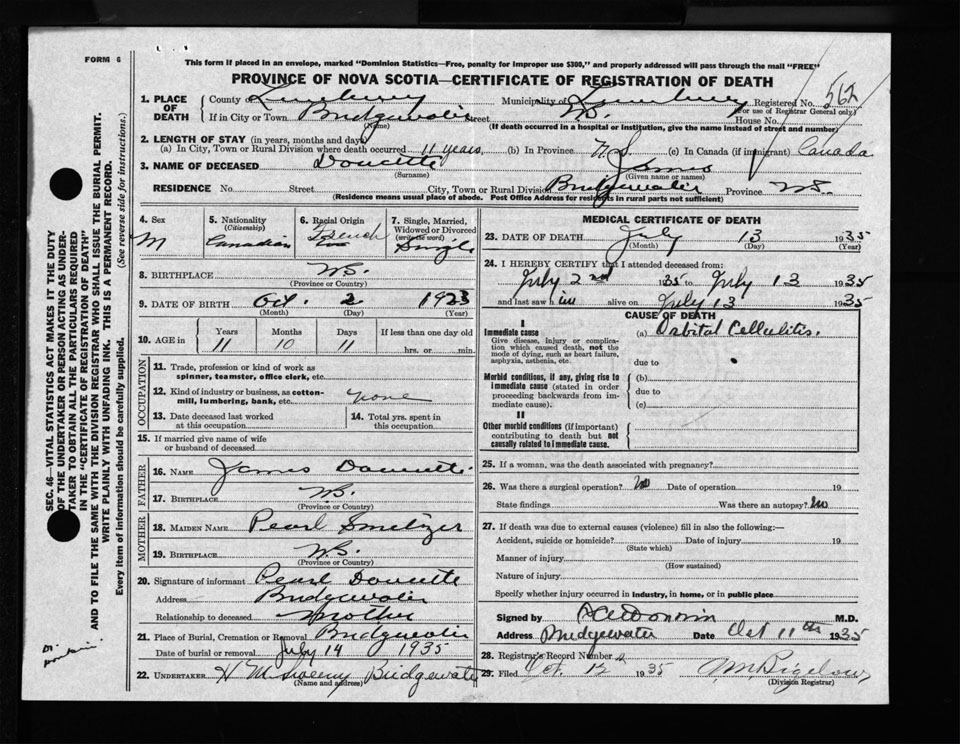 FORM 6
This form if placed in an envelope, marked "Dominion Statistics—Free, penalty for improper use $300," and properly addressed will pass through the mail "FREE"
PROVINCE OF NOVA SCOTIA—CERTIFICATE OF REGISTRATION OF DEATH
1. PLACE OF DEATH
County of Lunenburg Municipality of Lunenburg Registered No. 562
(For use of Registrar General only.)
If in City or Town Bridgewater Street House No.
(Name) (If death occurred in a hospital or institution, give the name instead of street and number)
2. LENGTH OF STAY (in years, months and days)
(a) In City, Town or Rural Division where death occurred 11 years, (b) In Province N.S. (c) In Canada (if immigrant) Canada
3. NAME OF DECEASED Doucette James
(Surname) (Given name or names)
RESIDENCE No. Street City, Town or Rural Division Bridgewater Province N.S.
(Residence means usual place of abode. Post Office Address for residents in rural parts not sufficient)
4. Sex M
5. Nationality (Citizenship) Canadian
6. Racial Origin French
7. Single, Married, Widowed or Divorced (write the word) Single
8. BIRTHPLACE N.S.
(Province or Country)
9. DATE OF BIRTH Oct. 2 1923
(Month) (Day) (Year)
10. AGE in Years 11 Months 10 Days 11 If less than one day old hrs. or min.
OCCUPATION
11. Trade, profession or kind of work as spinner, teamster, office clerk, etc.
12. Kind of industry or business, as cotton-mill, lumbering, bank, etc. none
13. Date deceased last worked at this occupation
14. Total yrs. spent in this occupation
15. If married give name of wife or husband of deceased
FATHER
16. NAME James Doucette
17. BIRTHPLACE N.S.
(Province or Country)
MOTHER
18. MAIDEN NAME Pearl Smeltzer
19. BIRTHPLACE N.S.
(Province or Country)
20. Signature of informant Pearl Doucette
Address Bridgewater
Relationship to deceased mother
21. Place of Burial, Cremation or Removal Bridgewater
Date of burial or removal July 14 1935
22. UNDERTAKER Bridgewater
(Name and address)
MEDICAL CERTIFICATE OF DEATH
23. DATE OF DEATH July 13 1935
(Month) (Day)
24. I HEREBY CERTIFY that I attended deceased from:
July 2nd 1935 to July 13 1935
and last saw him alive on July 13 1935
CAUSE OF DEATH
I
Immediate cause
Give disease, injury or complication which caused death, not the mode of dying, such as heart failure, asphyxia, asthenia, etc.
(a) Orbital Cellulitis.
due to
Morbid conditions, if any, giving rise to immediate cause (stated in order proceeding backwards from immediate cause).
(b)
due to
(c)
II
Other morbid conditions (if important) contributing to death but not causally related to immediate cause.
25. If a woman, was the death associated with pregnancy?
26. Was there a surgical operation? No Date of operation 19
State findings Was there an autopsy? No
27. If death was due to external causes (violence) fill in also the following:—
Accident, suicide or homicide? Date of injury 19
(State which)
Manner of injury
(How sustained)
Nature of injury
Specify whether injury occurred in industry, in home, or in public place
Signed by M.D.
Address Bridgewater Date Oct 11th 1935
28. Registrar's Record Number
29. Filed Oct. 12 1935
(Division Registrar)
SEC. 46—VITAL STATISTICS ACT MAKES IT THE DUTY
OF THE UNDERTAKER OR PERSON ACTING AS UNDER-
TAKER TO OBTAIN ALL THE PARTICULARS REQUIRED
IN THE "CERTIFICATE OF REGISTRATION OF DEATH"
AND TO FILE THE SAME WITH THE DIVISION REGISTRAR WHO SHALL ISSUE THE BURIAL PERMIT.
WRITE PLAINLY WITH UNFADING INK. THIS IS A PERMANENT RECORD.
Every item of information should be carefully supplied. (See reverse side for instructions.)